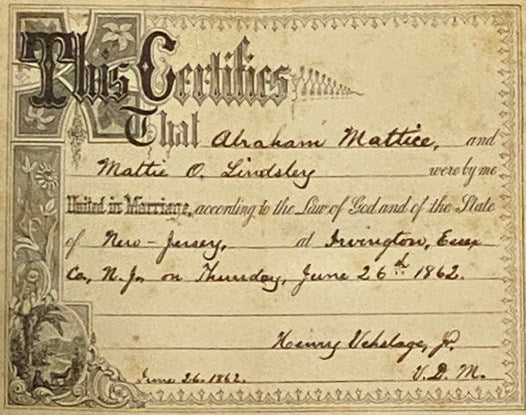 This Certifies
That Abraham Mattice, and
Mattie O. Lindsley were by me
United in Marriage, according to the Law of God and of the State
of New-Jersey, at Irvington, Essex
Co, N. J. on Thursday, June 26th 1862.
Henry Jr.
June 26. 1862. V. D. M.